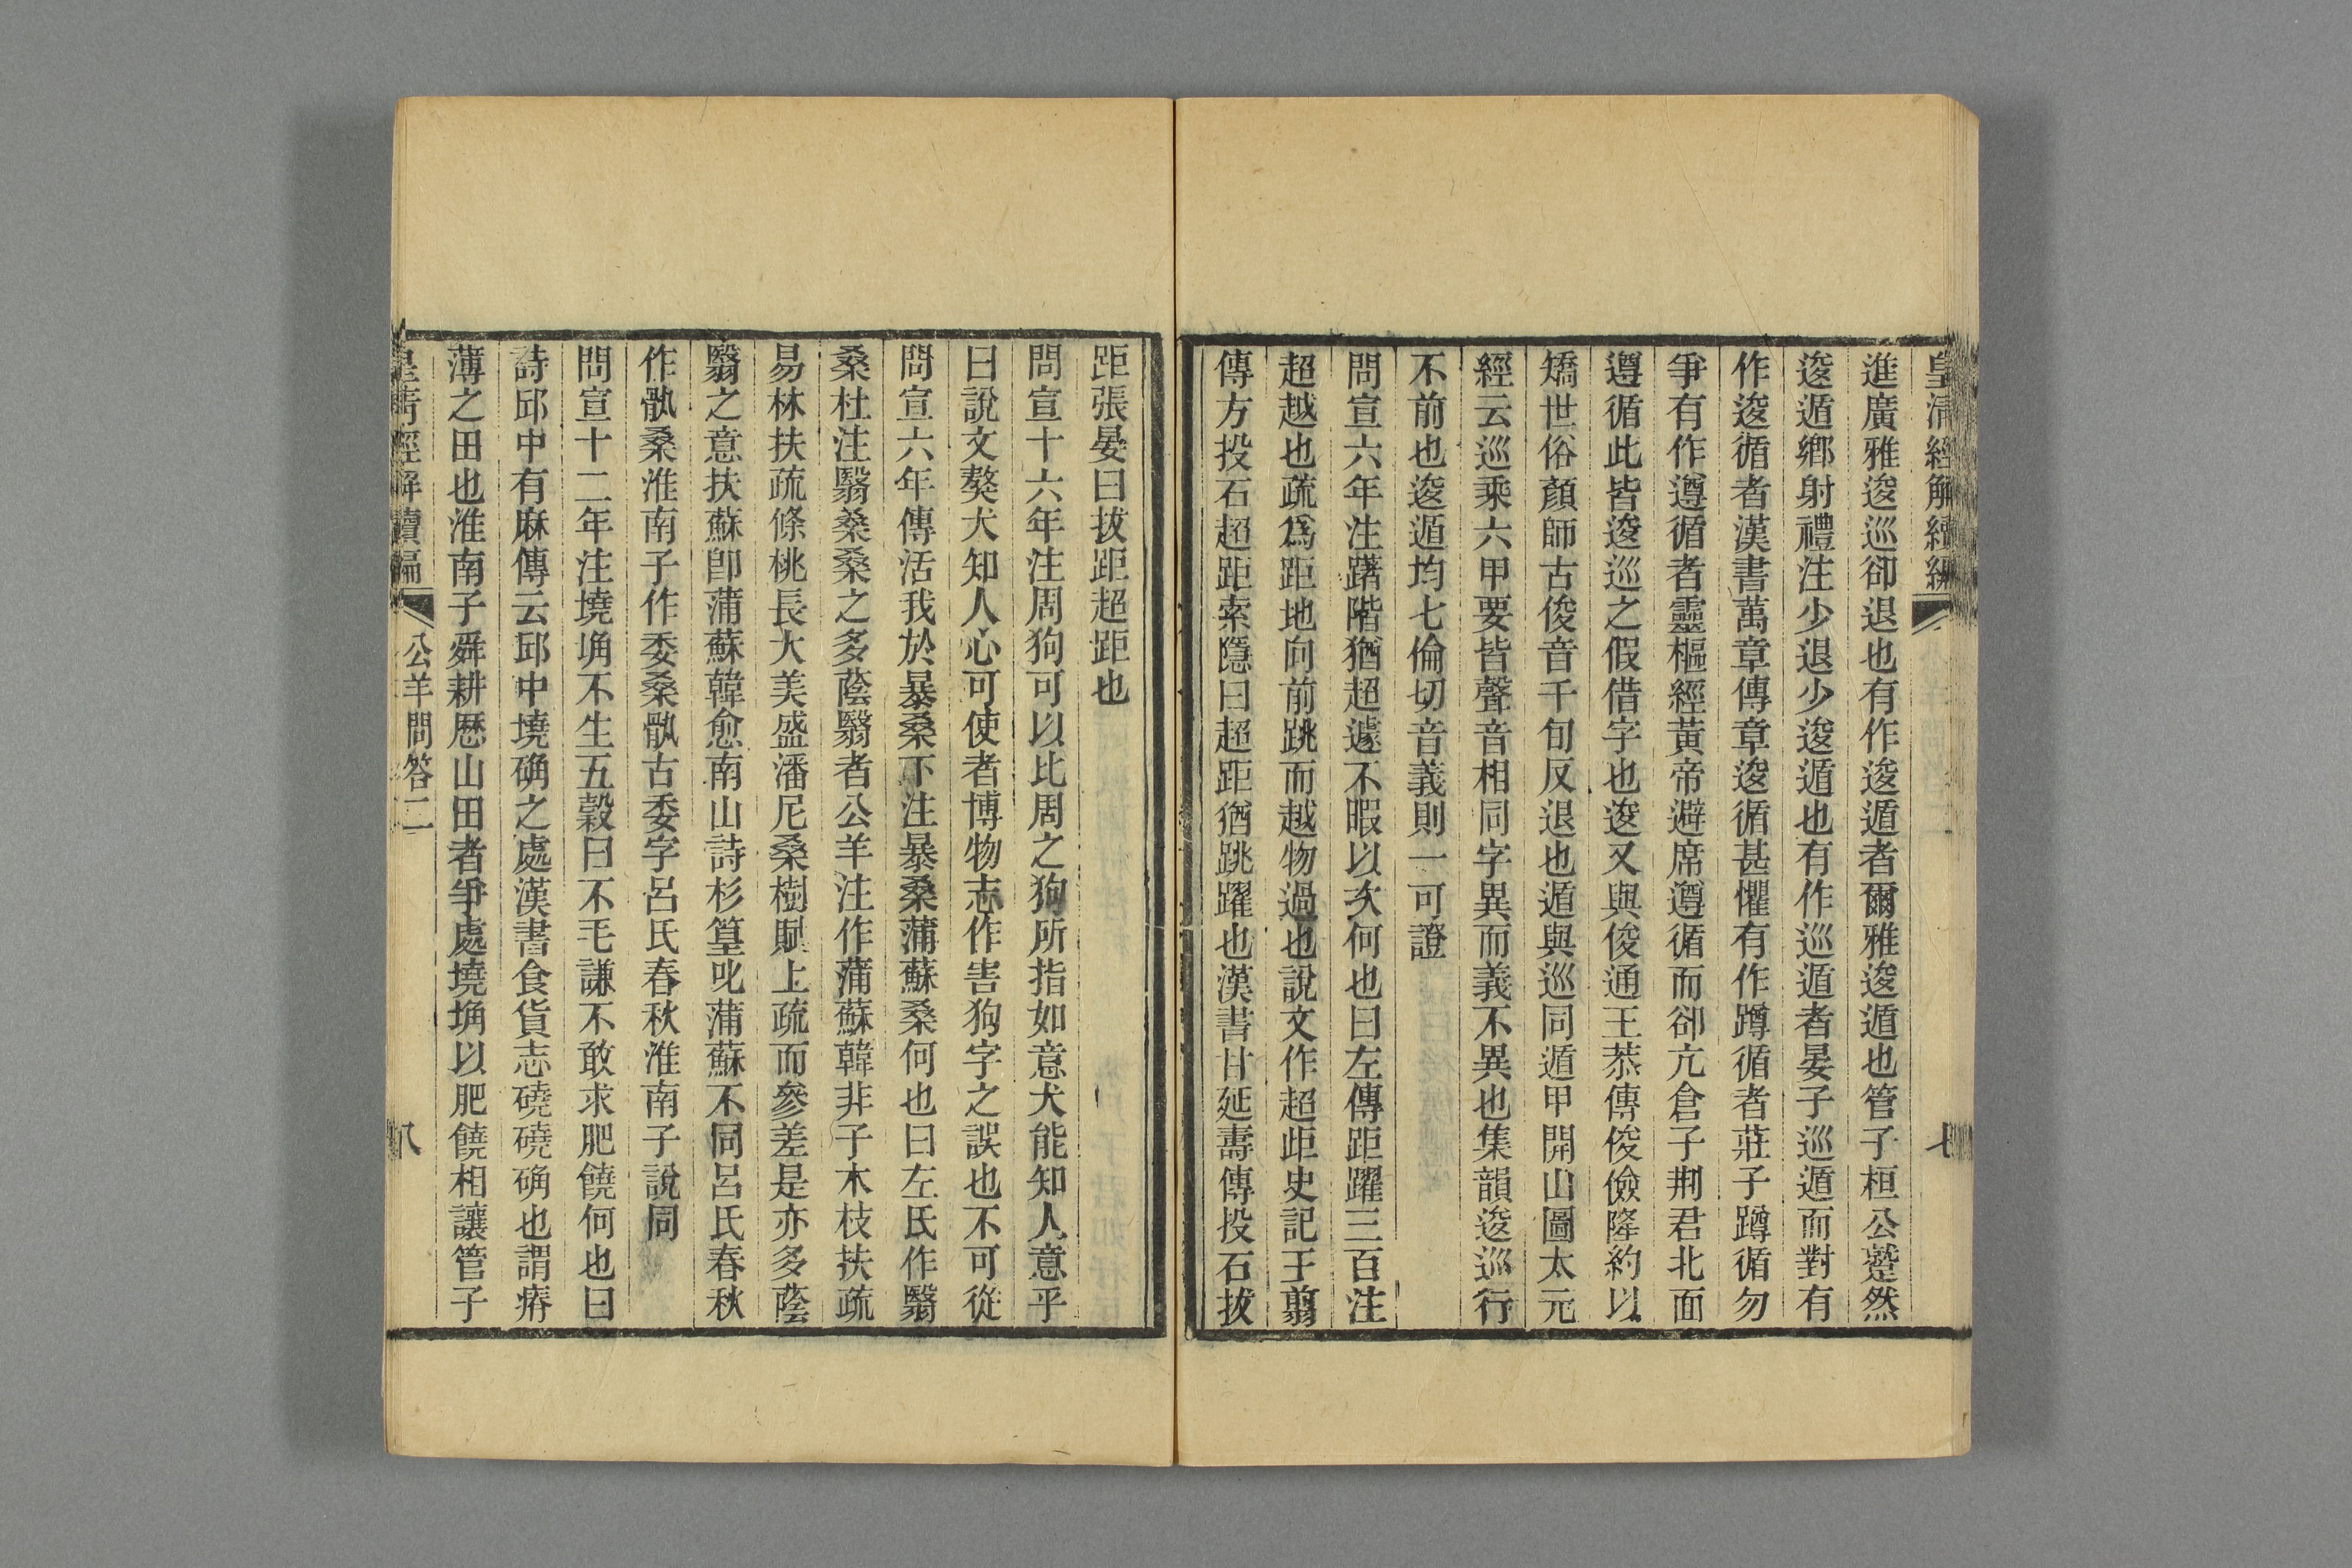 皇清經解續編
七
進廣雅逡巡卻退也有作逡遁者爾雅逡遁也管子桓公蹵然
逡遁鄕射禮注少退少逡遁也有作巡遁者晏子巡遁而對有
作逡循者漢書萬章傳章逡循甚懼有作蹲循者莊子蹲循勿
爭有作遵循者靈樞經黃帝避席遵循而卻亢倉子荆君北面
遵循此皆逡巡之假借字也逡又與俊通王莽傳俊儉隆約以
矯世俗顏師古俊音千旬反退也遁與巡同遁甲開山圖太元
經云巡乘六甲要皆聲音相同字異而義不異也集韻逡巡行
不前也逡遁均七倫切音義則一可證
問宣六年注躇階猶超遽不暇以次何也曰左傳距躍三百注
超越也疏爲距地向前跳而越物過也說文作超歫史記王翦
傳方投石超距索隱曰超距猶跳躍也漢書甘延壽傳投石拔
距張晏曰拔距超距也
問宣十六年注周狗可以比周之狗所指如意犬能知人意乎
曰說文獒犬知人心可使者博物志作害狗字之誤也不可從
問宣六年傳活我於暴桑下注暴桑蒲蘇桑何也曰左氏作翳
桑杜注翳桑桑之多蔭翳者公羊注作蒲蘇韓非子木枝扶疏
易林扶疏條桃長大美盛潘尼桑樹賦上疏而參差是亦多蔭
翳之意扶蘇卽蒲蘇韓愈南山詩杉篁叱蒲蘇不同呂氏春秋
作骫桑淮南子作委桑骫古委字呂氏春秋淮南子說同
問宣十二年注墝埆不生五穀曰不毛謙不敢求肥饒何也曰
詩邱中有麻傳云邱中墝确之處漢書食貨志磽磽确也謂瘠
薄之田也淮南子舜耕歷山田者爭處墝埆以肥饒相讓管子
皇清經解續編
公羊問答二
八